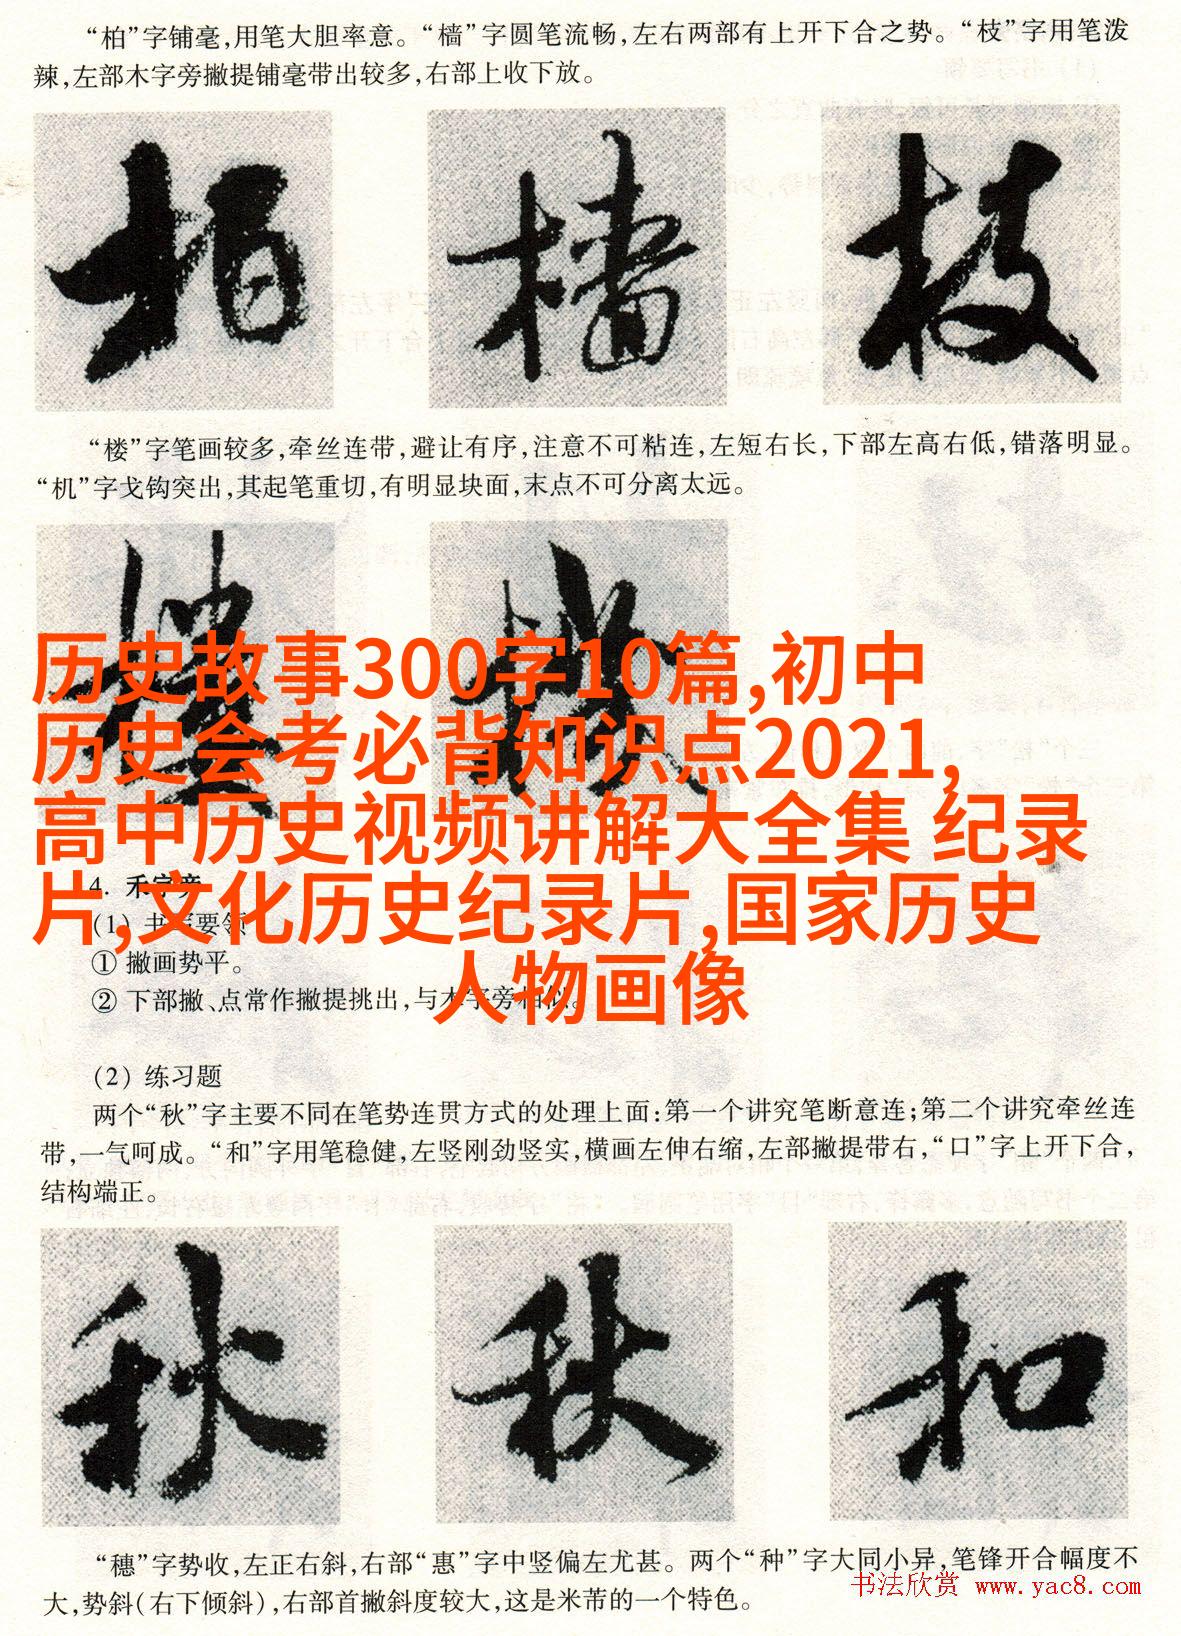 “柏”字铺毫,用笔大胆率意。“樯”字圆笔流畅,左右两部有上开下合之势。“枝”字用笔泼
辣,左部木字旁撇提铺毫带出较多,右部上收下放。
柏 樯 枝
“楼”字笔画较多,牵丝连带,避让有序,注意不可粘连,左短右长,下部左高右低,错落明显。
“机”字戈钩突出,其起笔重切,有明显块面,末点不可分离太远。
历史故事300字10篇,初中
历史会考必背知识点2021,
高中历史视频讲解大全集 纪录
片,文化历史纪录片,国家历史
人物画像
4. 禾字旁
(1) 书写要领
① 撇画势平。
② 下部撇、点常作撇提挑出,与木字旁相似。
(2) 练习题
两个“秋”字主要不同在笔势连贯方式的处理上面:第一个讲究笔断意连;第二个讲究牵丝连
带,一气呵成。“和”字用笔稳健,左竖刚劲竖实,横画左伸右缩,左部撇提带右,“口”字上开下合,
结构端正。
秋 秋 和
“穗”字势收,左正右斜,右部“惠”字中竖偏左尤甚。两个“种”字大同小异,笔锋开合幅度不
大,势斜(右下倾斜),右部首撇斜度较大,这是米芾的一个特色。
书法欣赏 www.yac8.com